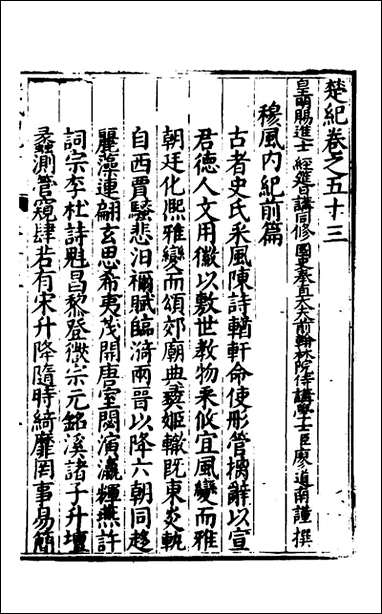 楚紀卷之五十三
皇明賜進士 經筵日講同修 國史奉直大夫前翰林院侍講學士臣廖道南謹撰
穆風內紀前篇
古者史氏采風陳詩輶軒命使彤管摛辭以宣
君德人文用徽以敷世教物采攸宜風變而雅
朝廷化熈雅變而頌郊廟典
姬轍既東炎軌
自西賈騷悲汨禰賦臨漪兩晉以降六朝同趍
麗藻連翩玄思希夷茂開唐室閎演瀛輝燕許
詞宗李杜詩魁昌黎登徵宗元銘溪諸子升壇
蠡測管窺肆若有宋升降隨時綺靡罔事易簡